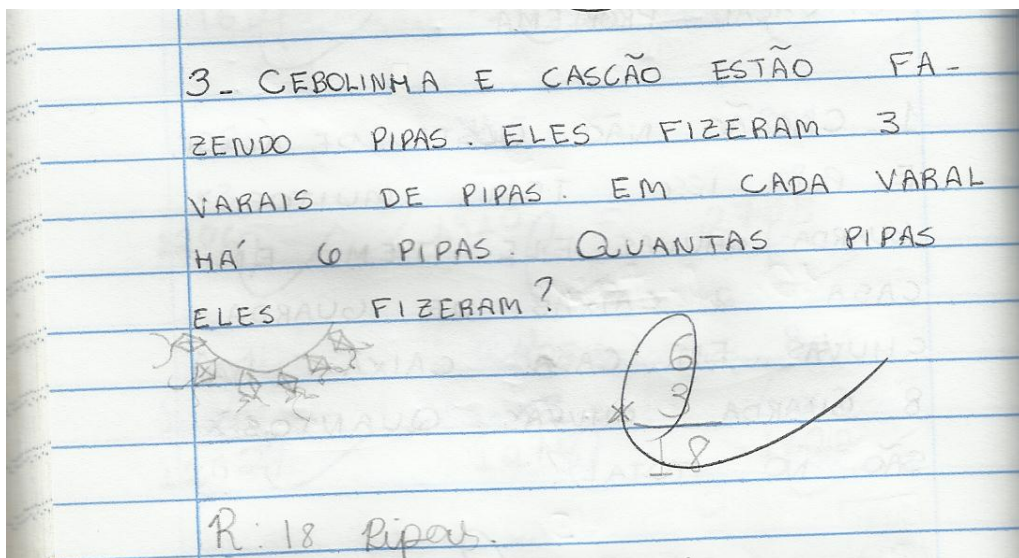 3_ CEBOLINHA E CASCÃO ESTÃO FA-
ZENDO PIPAS. ELES FIZERAM 3
VARAIS DE PIPAS. EM CADA VARAL
HÁ 6 PIPAS. QUANTAS PIPAS
ELES FIZERAM?
6
x 3
18
R: 18 Pipas.